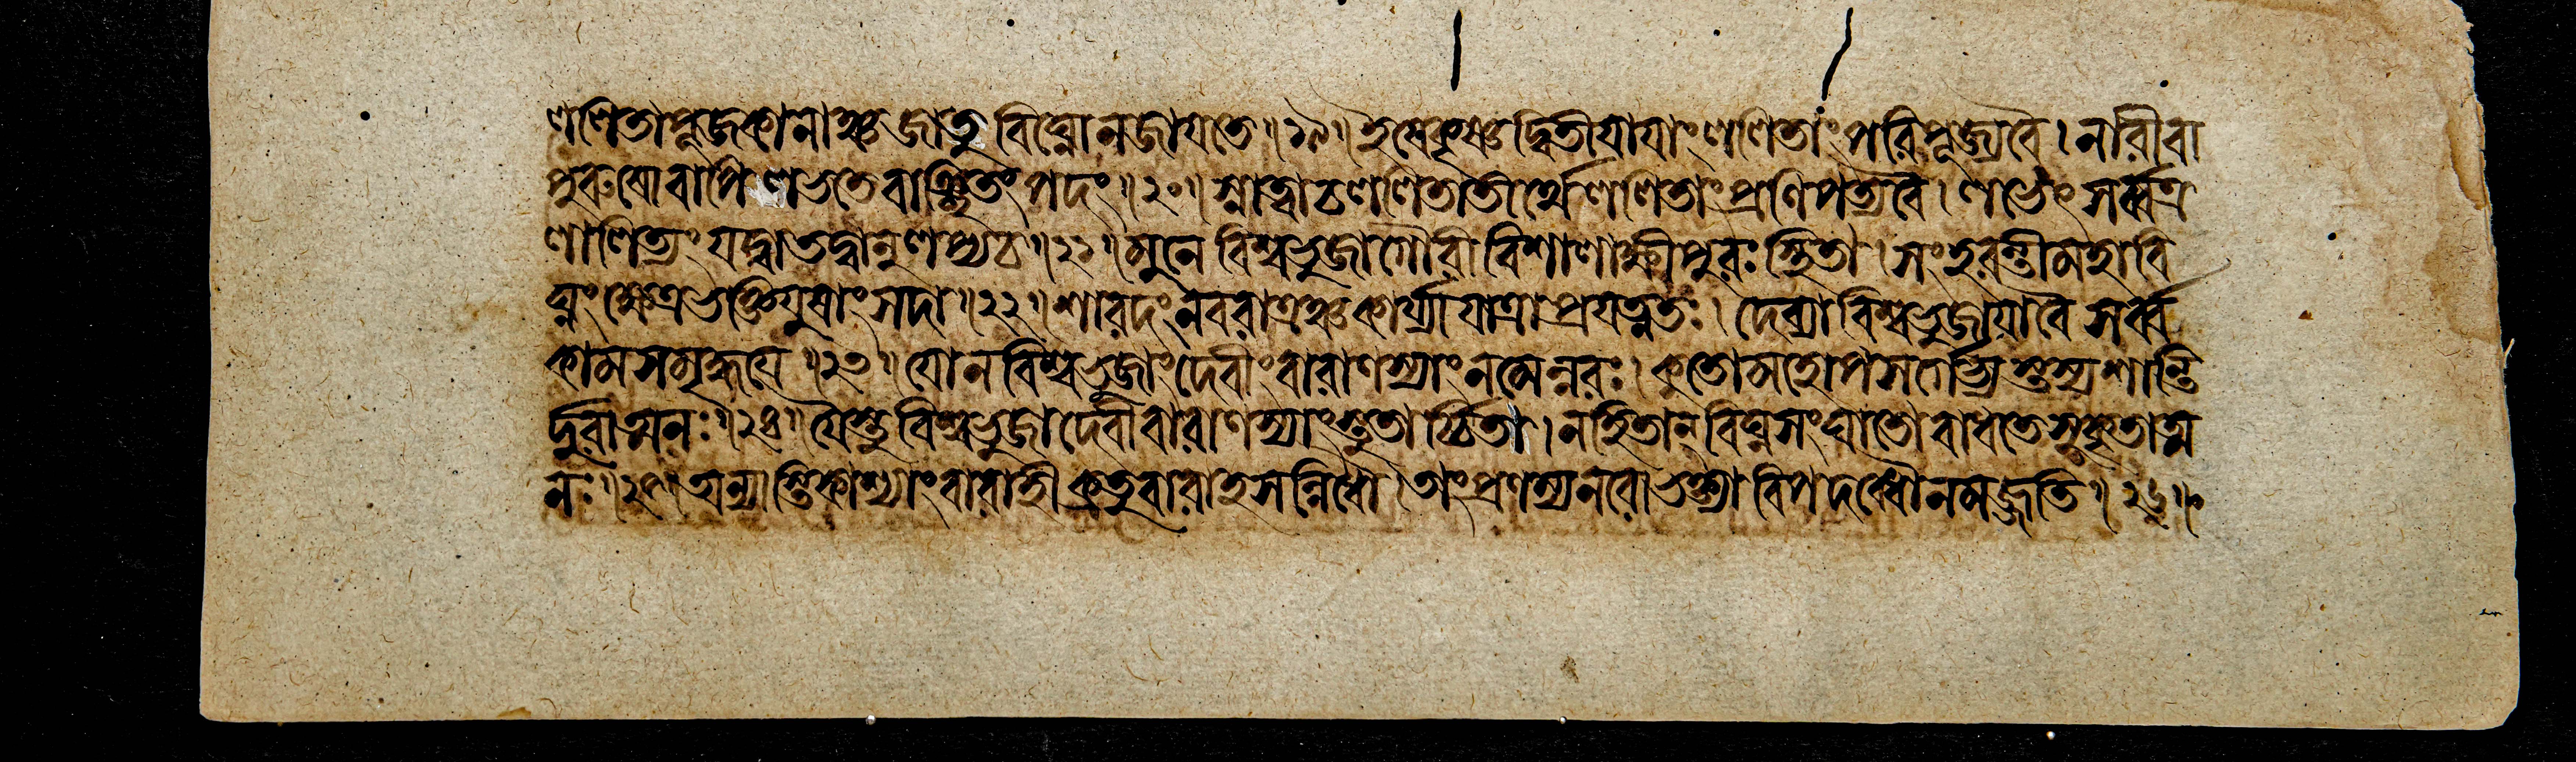 ললিতাপূজকানাঞ্চ জাতু বিঘ্নো ন জাযতে॥১৯॥ইষেকৃষ্ণদ্বিতীযাযাং ললিতাং পরিপূজ্য বৈ। নারী বা
পুরুষো বাপি লভতে বাঞ্ছিতং পদং॥২০॥স্নাত্বা চ ললিতাতীর্থে ললিতাং প্রণিপত্য বৈ। লভেৎ সর্ব্বত্র
লালিত্যং যদ্বা তদ্বানুলপ্য চ॥২১॥মুনে বিশ্বভুজা গৌরী বিশালাক্ষী পুরঃস্থিতা। সংহরন্তী মহাবি
ঘ্নং ক্ষেত্রভক্তিযুষাং সদা॥২২॥শারদং নবরাত্রঞ্চ কার্য্যা যাত্রা প্রযত্নতঃ। দেব্যা বিশ্বভুজাযা বৈ সর্ব্ব
কামসমৃদ্ধযে॥২৩॥যো ন বিশ্বভুজাং দেবীং বারাণস্যাং নমেন্নরঃ। কুতো মহোপসর্গেভ্যস্তস্য শান্তি
র্দুরাত্মনঃ॥২৪॥যৈস্তু বিশ্বভুজা দেবী বারাণস্যাং স্তুতার্চ্চিতা। ন হি তান্ বিঘ্নসংঘাতো বাধতে সুকৃতাত্ম
নঃ॥২৫॥অন্যাস্তি কাশ্যাং বারাহী ক্রতুবারাহসন্নিধৌ। তাং প্রণম্য নরো ভক্ত্যা বিপদব্ধৌ ন মজ্জতি॥২৬॥